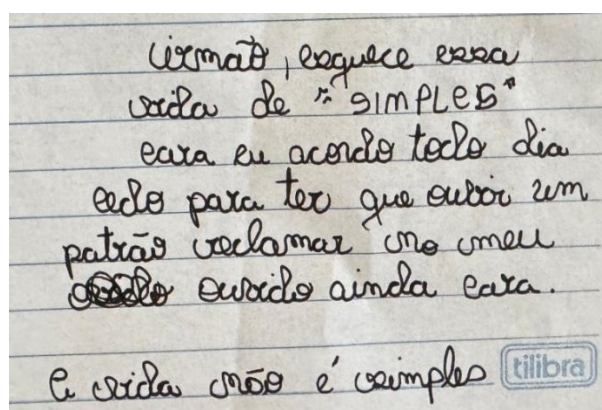 irmão, esquece essa
vida de "SIMPLES"
cara eu acordo todo dia
cedo para ter que ouvir um
patrão reclamar no meu
ouvido ainda cara.
A vida não é simples
tilibra